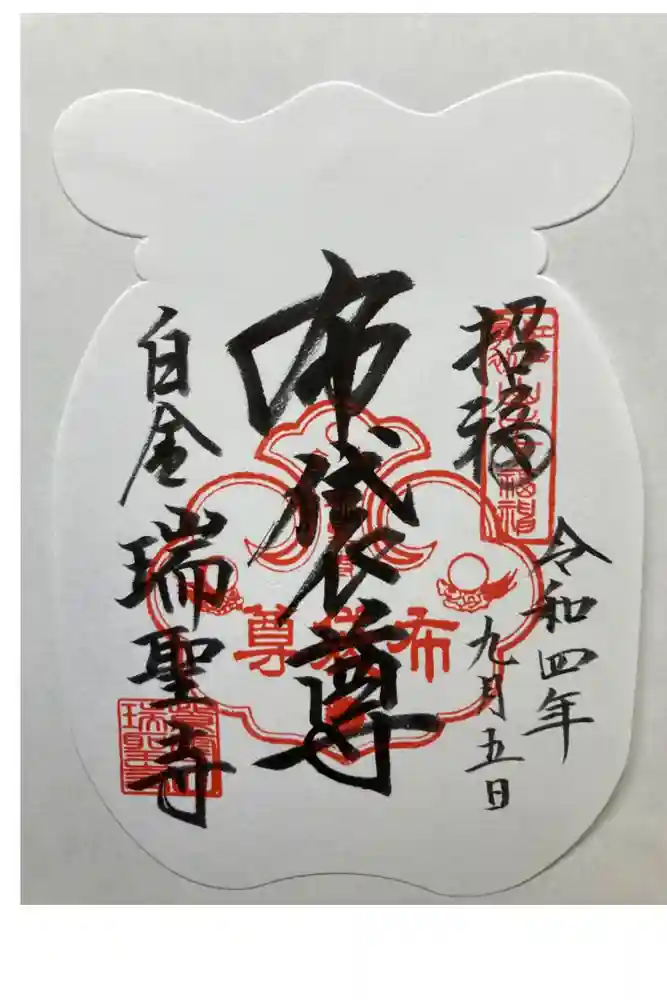 招福
令和四年
九月五日
布袋尊
布袋尊
白金
瑞聖寺